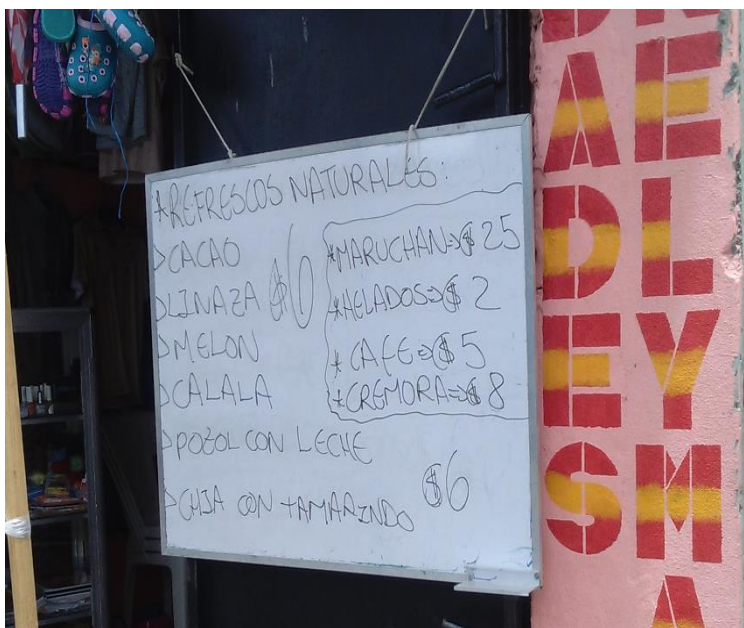 *REFRESCOS NATURALES:
>CACAO
>LINAZA $6
>MELON
>CALALA
>POZOL CON LECHE
>CHIA CON TAMARINDO $6
*MARUCHAN=>$25
*HELADOS=>$2
*CAFE=>$5
*CREMORA=>$8
ADES
ELYM